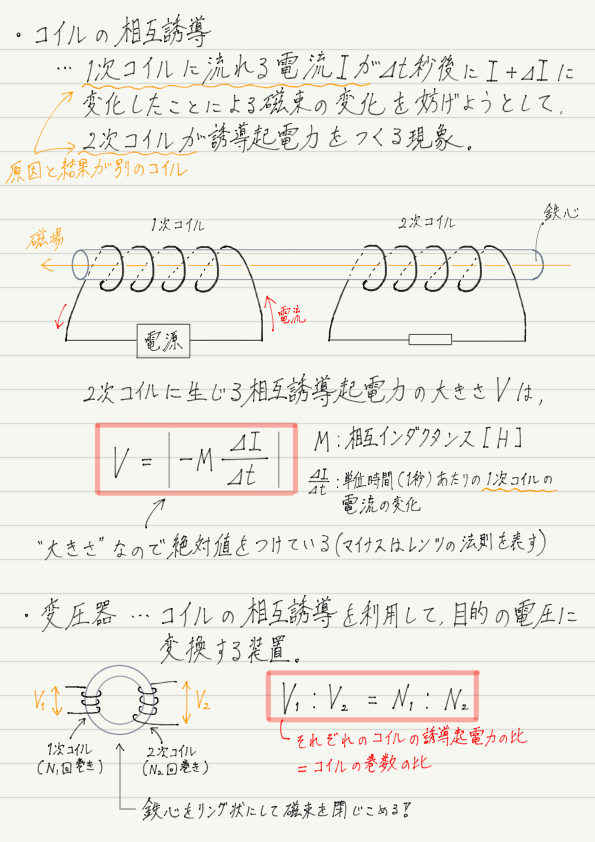 ・コイルの相互誘導
… 1次コイルに流れる電流IがΔt秒後にI+ΔIに
変化したことによる磁束の変化を妨げようとして、
2次コイルが誘導起電力をつくる現象。
原因と結果が別のコイル
1次コイル
2次コイル
鉄心
磁場
電流
電源
2次コイルに生じる相互誘導起電力の大きさVは、
V = | -M ΔI/Δt |
M:相互インダクタンス[H]
ΔI/Δt :単位時間(1秒)あたりの1次コイルの
電流の変化
"大きさ"なので絶対値をつけている(マイナスはレンツの法則を表す)
・変圧器 … コイルの相互誘導を利用して、目的の電圧に
変換する装置。
V₁
V₂
V₁ : V₂ = N₁ : N₂
それぞれのコイルの誘導起電力の比
= コイルの巻数の比
1次コイル
(N₁回巻き)
2次コイル
(N₂回巻き)
鉄心をリング状にして磁束を閉じこめる!